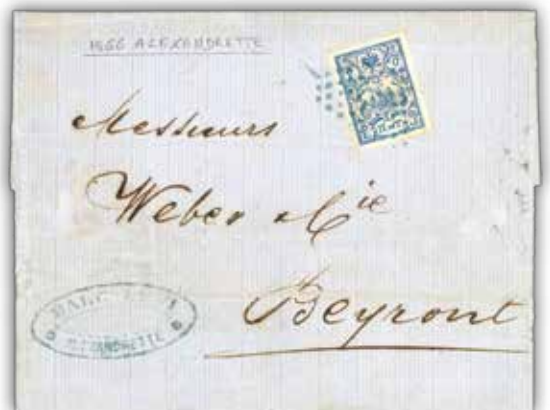 1866 ALEXANDRETTE
Messieurs
Weber & Cie
Beyrout
ALEXANDRETTE